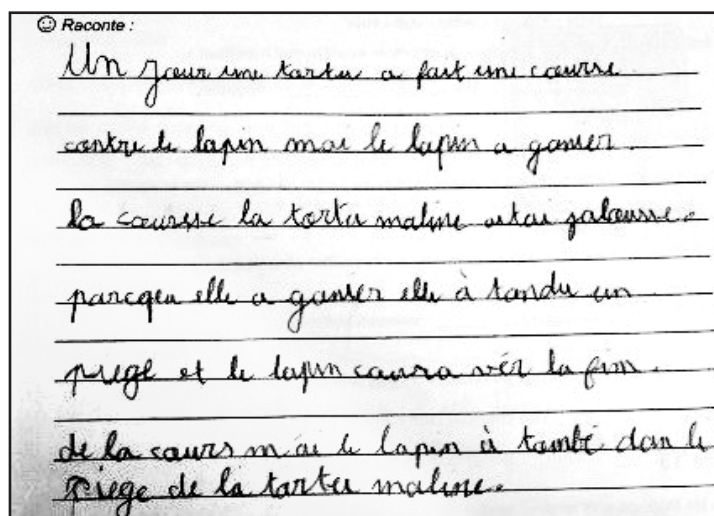 Raconte :
Un jour une tortu a fait une course
contre le lapin mai le lapin a ganser
la coursse la tortu maline estai jalousse.
parcqeu elle a ganser elle à tandu un
piege et le lapin coura vér la fin
de la cours mai le lapin à tombé dan le
piege de la tortu maline.